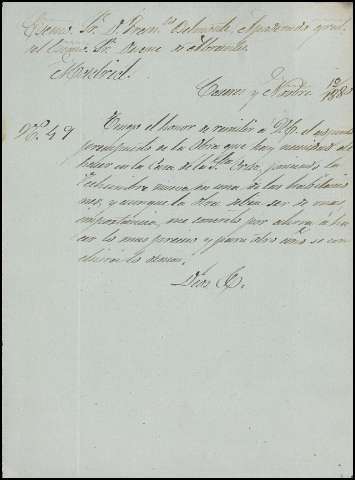 Excmo. Sr. D. Fran.co Belmonte, Apoderado gral.
del Excmo. Sr. Duque de Abrantes.
Madrid.
Cáceres y Novbre
Nº. 49
Tengo el honor de remitir a V.E. el adjunto
presupuesto de la Obra que hay necesidad de
hacer en la Casa de la Sta. poniendo la
techumbre nueva en una de las habitacio
nes, y aunque la obra debía ser de mas
importancia, me concreto por ahora á ha
cer lo mas preciso y para otro año se con
cluirá lo demas.
Dios &.